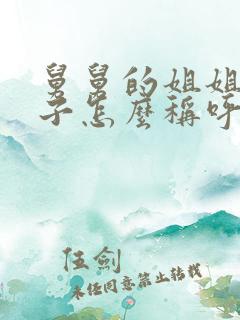 舅舅的姐姐
子怎麼稱呼
伍劍
未任同意禁止转载